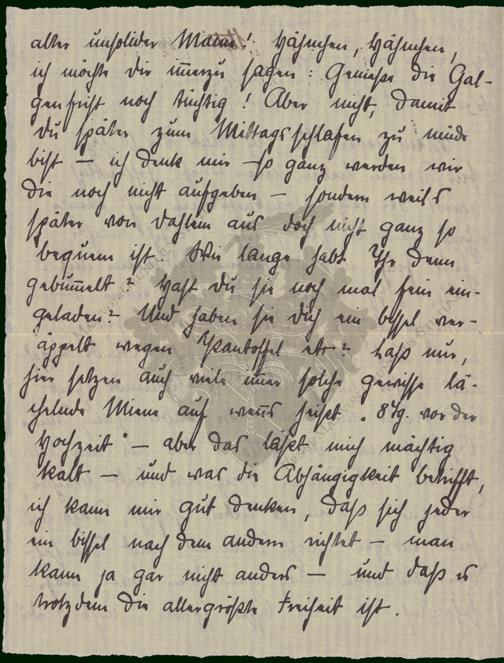 alter unsolider Mann! Hähnchen, Hähnchen,
ich möchte dir immerzu sagen: Genieße die Gal-
genfrist noch tüchtig! Aber nicht, damit
du später zum Mittagsschlafen zu müde
bist – ich denk mir – so ganz werden wir
die noch nicht aufgeben – sondern weil's
später von Dahlem aus doch nicht ganz so
bequem ist. Wie lange habt Ihr denn
gebummelt? Hast du sie noch mal fein ein-
geladen? Und haben sie dich ein bissel ver-
äppelt wegen Pantoffel etc? Laß nur,
hier setzen auch viele immer solche gewisse lä-
chelnde Miene auf wenns heißt „8 Tg. vor der
Hochzeit" – aber das läßt mich mächtig
kalt – und was die Abhängigkeit betrifft,
ich kann mir gut denken, daß sich jeder
ein bissel nach dem andern richtet – man
kann ja gar nicht anders – und daß es
trotzdem die allergrößte Freiheit ist.